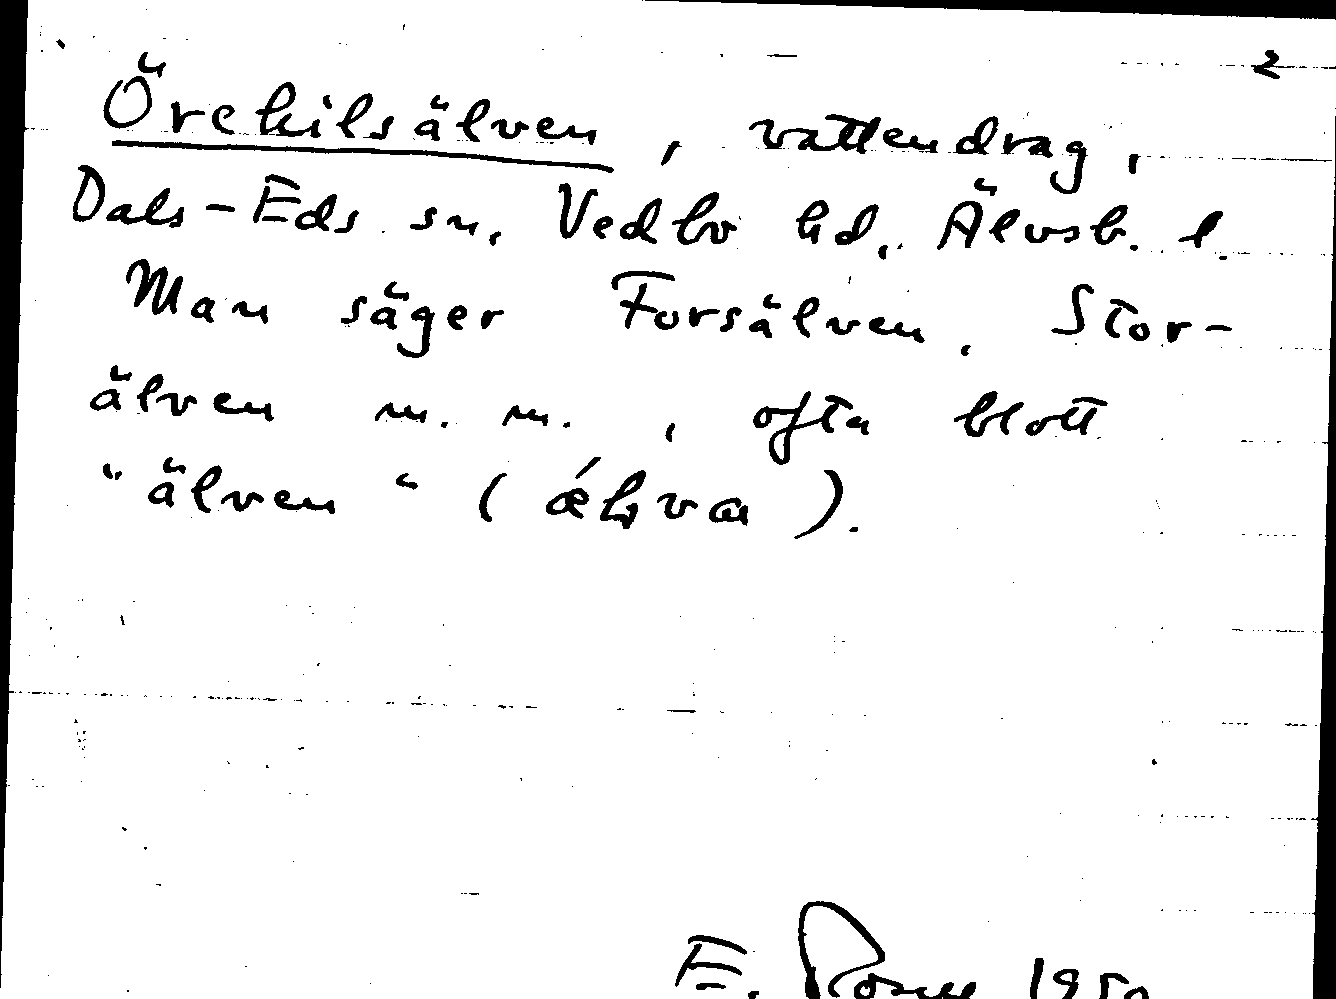 2
Örekilsälven, vattendrag,
Dals-Eds sn, Vedbo hd, Älvsb. l.
Man säger Forsälven, Stor-
älven m. m., ofta blott
"älven" ().
E. 195